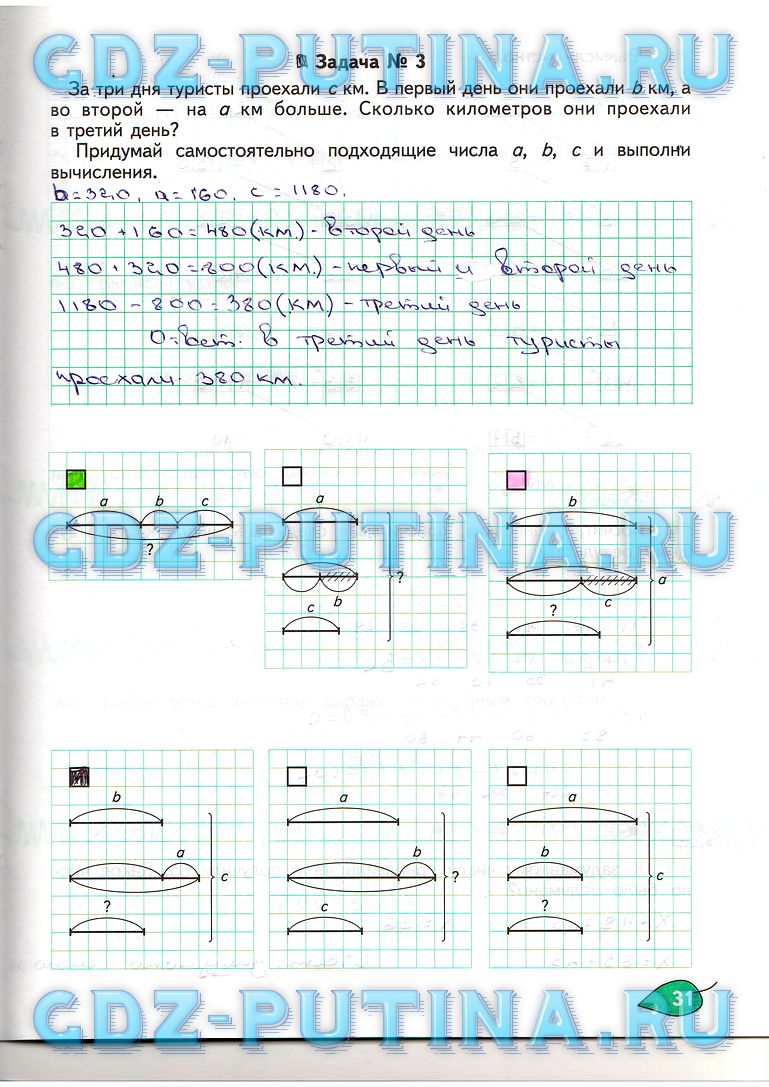 GDZ-PUTINA.RU
Задача № 3
За три дня туристы проехали c км. В первый день они проехали b км, а
во второй — на a км больше. Сколько километров они проехали
в третий день?
Придумай самостоятельно подходящие числа a, b, c и выполни
вычисления.
b=320, a=160, c=1180.
GDZ-PUTINA.RU
320+160=480(км.)-второй день
480+320=800(км.)-первый и второй день
1180-800=380(км.)-третий день
Ответ. в третий день туристы
проехали. 380 км.
GDZ-PUTINA.RU
a b c
?
a
b
c
?
b
c
?
a
GDZ-PUTINA.RU
GDZ-PUTINA.RU
b
a
?
c
a
b
c
?
a
b
?
c
GDZ-PUTINA.RU
31
GDZ-PUTINA.RU